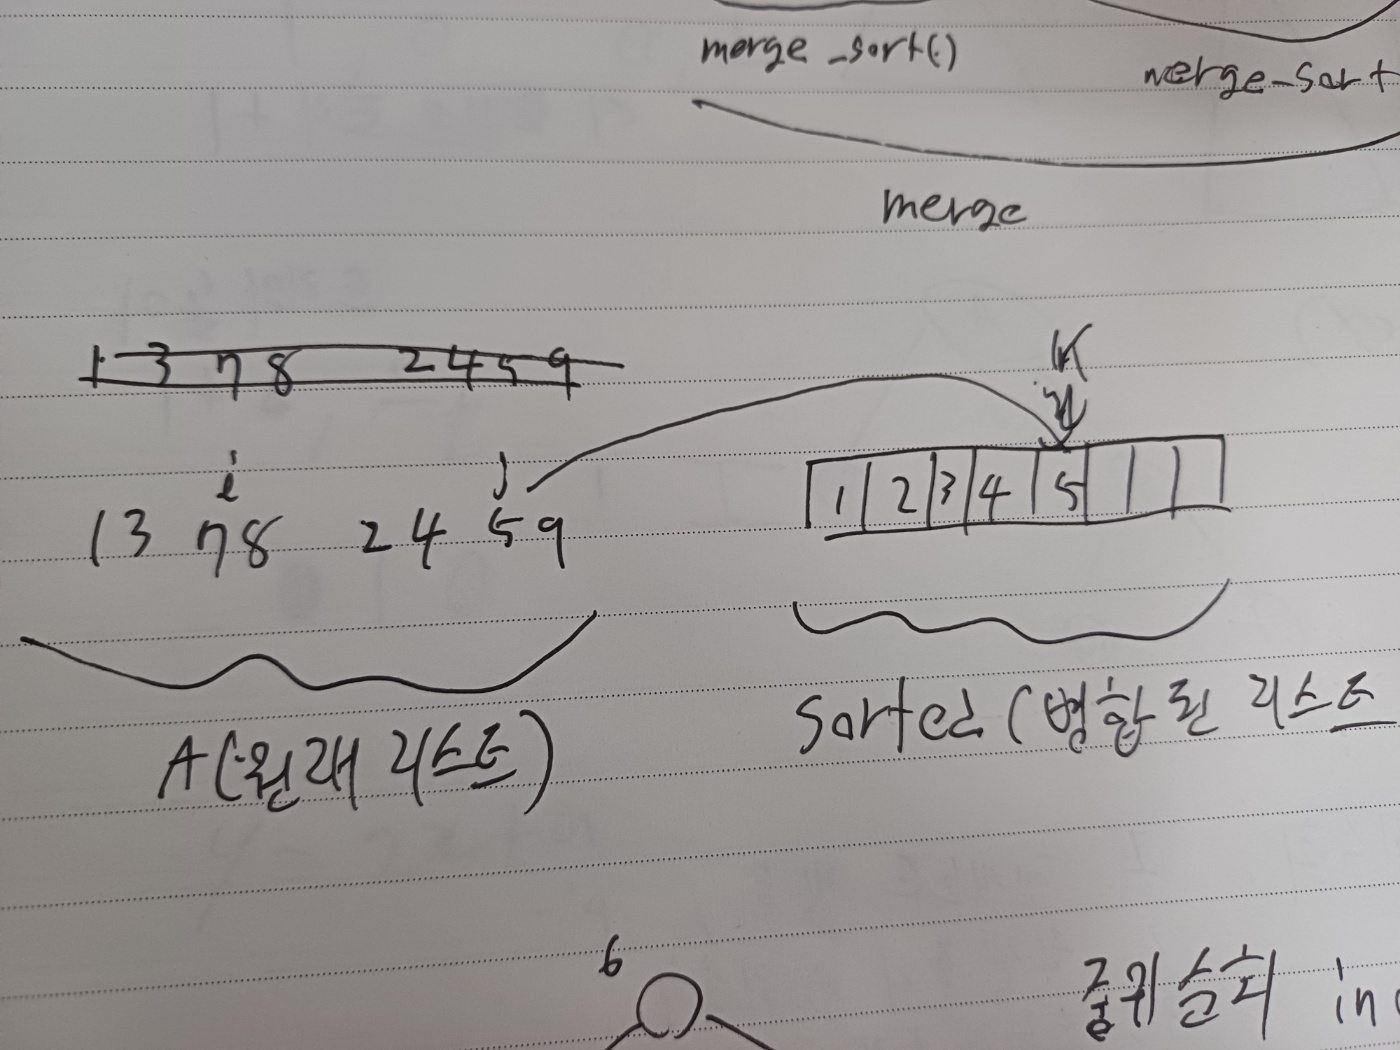 merge_sort()
merge_sort
merge
1 3 7 8 2 4 5 9
K
i j
1 3 7 8 2 4 5 9
1 2 3 4 5
A(원래 리스트)
Sorted (병합된 리스트
6
중위순회 in